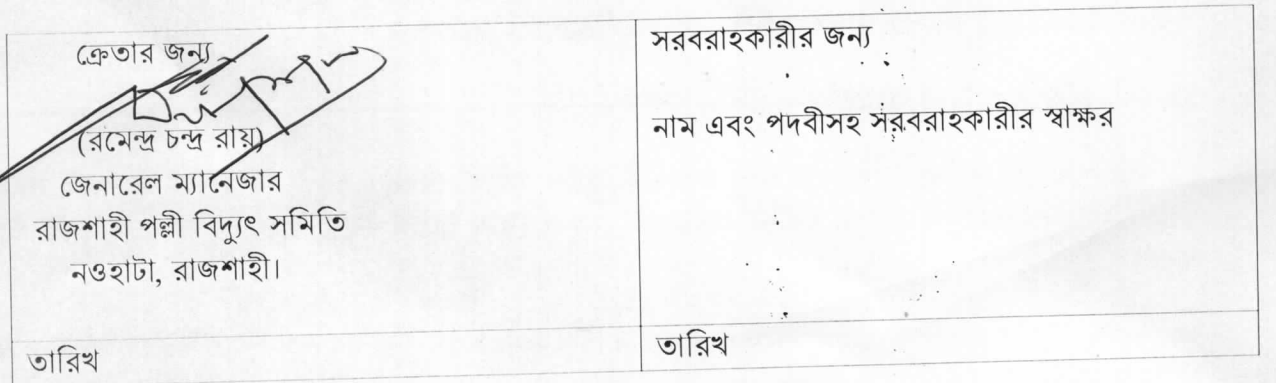 ক্রেতার জন্য
(রমেন্দ্র চন্দ্র রায়)
জেনারেল ম্যানেজার
রাজশাহী পল্লী বিদ্যুৎ সমিতি
নওহাটা, রাজশাহী।
তারিখ
সরবরাহকারীর জন্য
নাম এবং পদবীসহ সরবরাহকারীর স্বাক্ষর
তারিখ